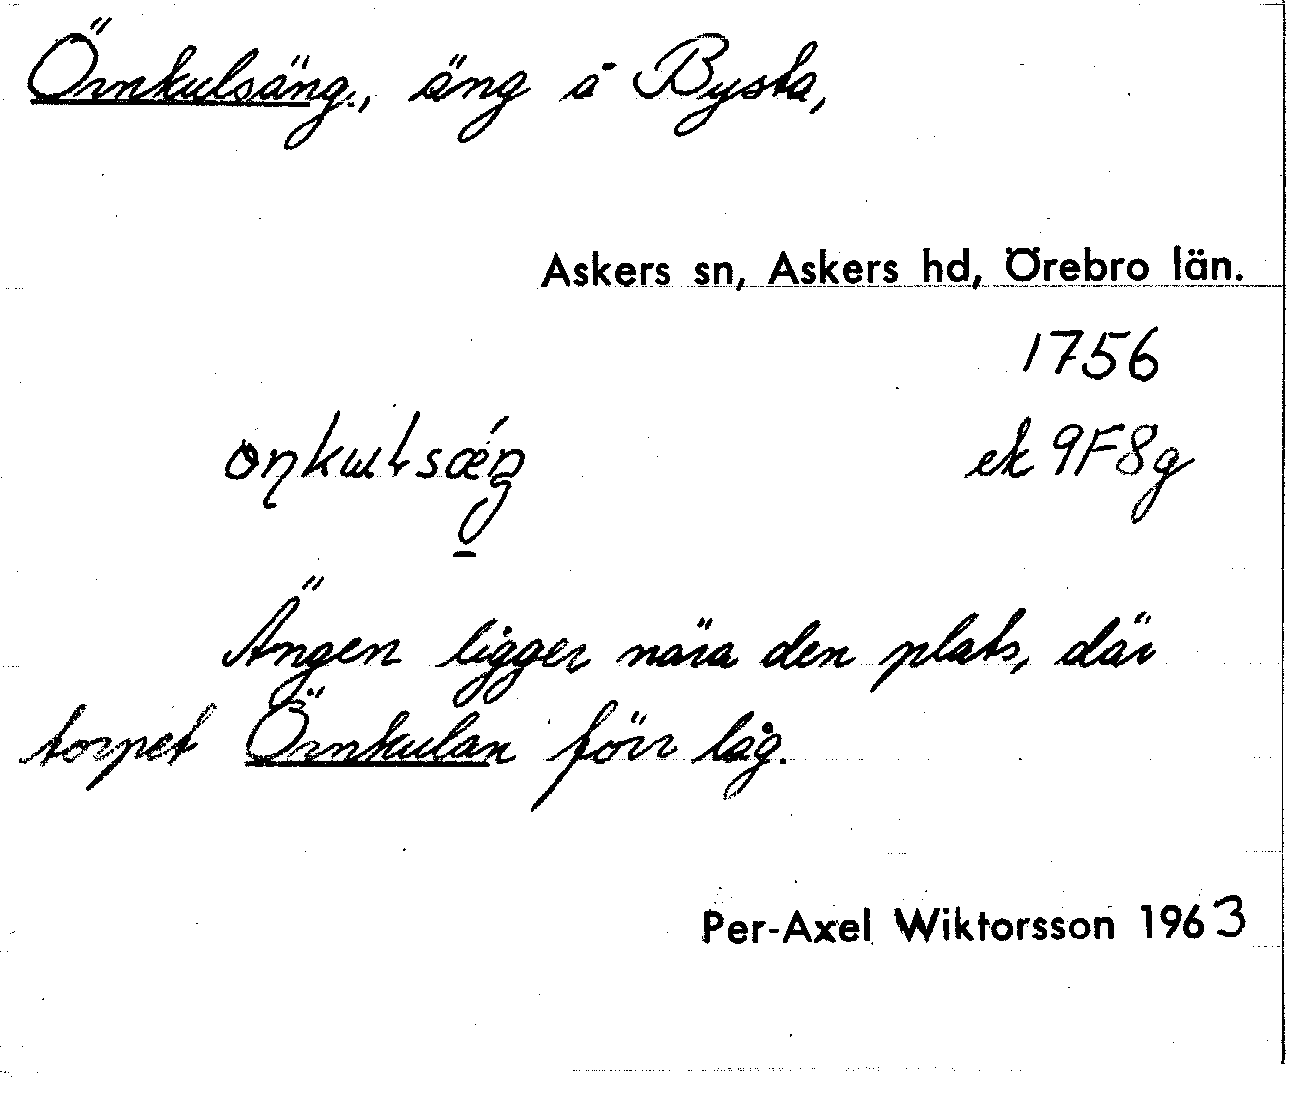 Örnkulsäng, äng å Bysta,
Askers sn, Askers hd, Örebro län.
1756
ek 9F8g
Ängen ligger nära den plats, där
torpet Örnkulan förr låg.
Per-Axel Wiktorsson 1963